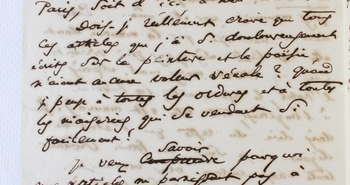 Paris, soit d'ici à
Dois-je réellement croire que tous
ces articles que j'ai si douloureusement
écrits sur la peinture et la poésie,
n'aient aucune valeur vénale ? Quand
je pense à toutes les ordures et à toutes
les niaiseries qui se vendent si
facilement !
Savoir
Je veux pourquoi
articles ne paraissent pas à